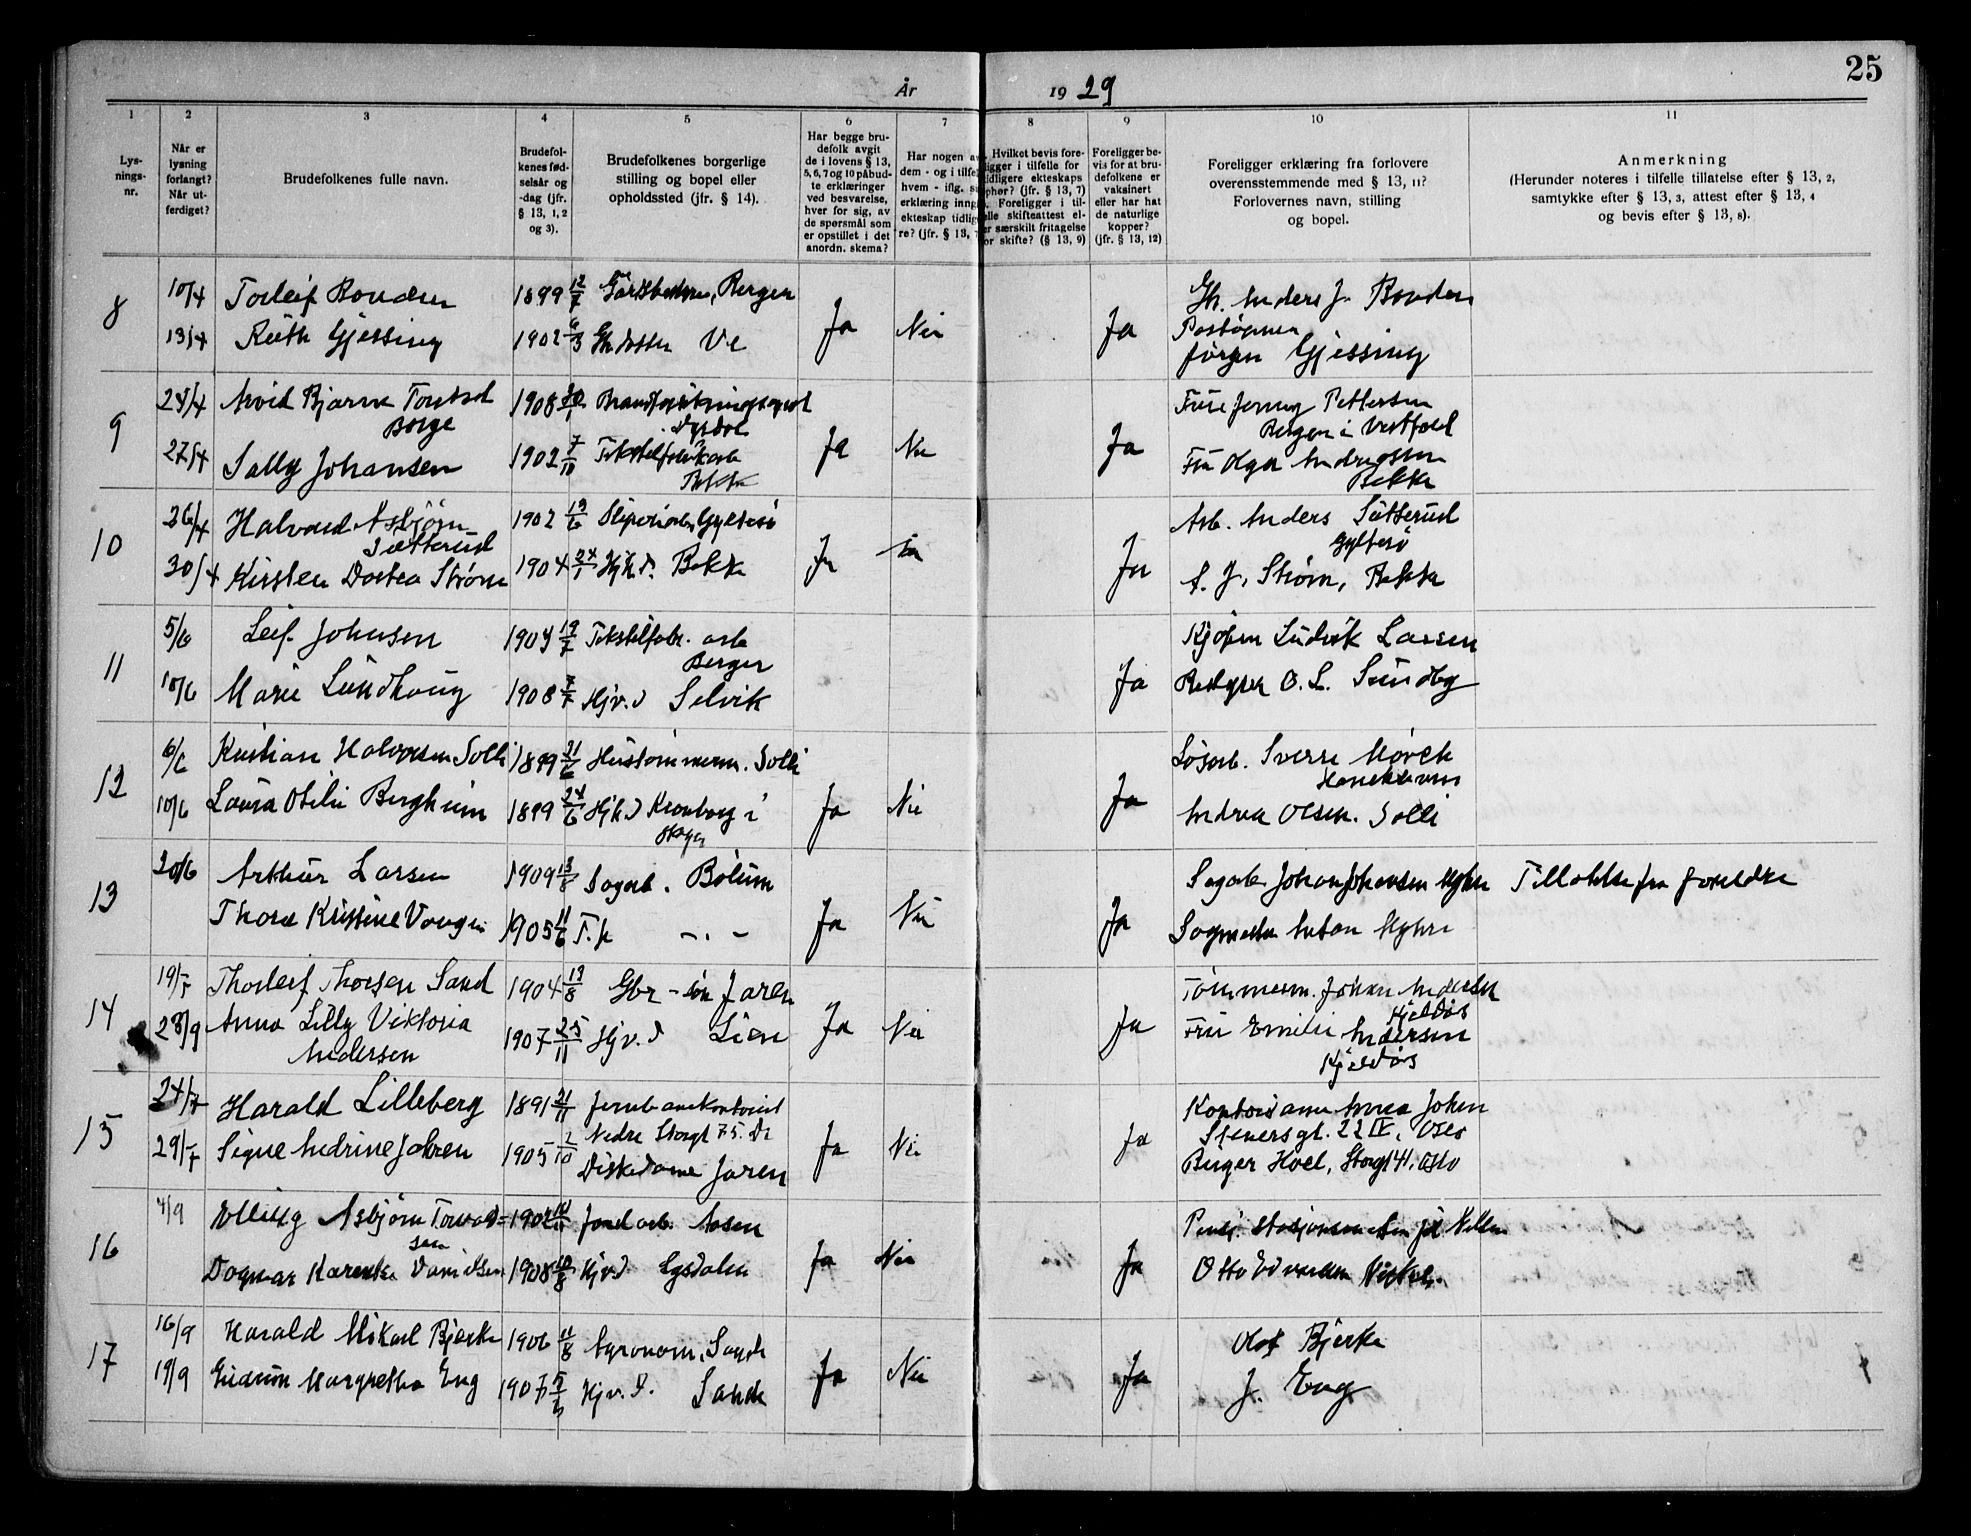 25
År 1929
1 2 3 4 5 6 7 8 9 10 11
Lysningsnr.
Når er lysning forlangt? Når utferdiget?
Brudefolkenes fulle navn.
Brudefolkenes fødselsår og -dag (jfr. § 13, 1, 2 og 3).
Brudefolkenes borgerlige stilling og bopel eller opholdssted (jfr. § 14).
Har begge brudefolk avgit de i lovens § 13, 5, 6, 7 og 10 påbudte erklæringer ved besvarelse, hver for sig, av de spørsmål som er opstillet i det anordn. skema?
Har nogen av dem - og i tilfelle hvem - iflg. erklæring inngå ekteskap tidligere? (jfr. § 13,
Hvilket bevis foreligger i tilfelle for tidligere ekteskaps ophør? (jfr. § 13, 7) Foreligger i tilfelle skifteattest eller særskilt fritagelse for skifte? (§ 13, 9)
Foreligger bevis for at brudefolkene er vaksinert eller har hat de naturlige kopper? (jfr. § 13, 12)
Foreligger erklæring fra forlovere overensstemmende med § 13, 11? Forlovernes navn, stilling og bopel.
Anmerkning
(Herunder noteres i tilfelle tillatelse efter § 13, 2, samtykke efter § 13, 3, attest efter § 13, 4 og bevis efter § 13, 8).
8 10/4 Torleif Bonden 1899 12/7 Bergen Ja Nei Ja Gb. Anders J. Bonden
13/4 Ruth Gjessing 1902 6/3 Gbdatter Ve
Jørgen Gjessing
9 24/4 Arvid Bjarne 1908
Borge
27/4 Sally Johansen 1902 7/10 Ja Nei Ja
Frue Jenny Pettersen
Bergen i Vestfold
Fru Olga Andreassen
Bekke
10 26/4 Halvard Asbjørn 1902 19/6 Gyltesø
Sætterud
30/4 Kirsten Dortea Strøm 1904 24/1 Bekke Ja Ja
Arb. Anders Sætterud
Gyltesø
A. J. Strøm, Bekke
11 5/6 Leif Johnsen 1904 19/7 Tekstilfabr. arb
Berger
10/6 Marie Sundhaug 1908 7/7 Hjv. d Selvik Ja
Kjøpm Ludvik Larsen
O. L. Sundby
12 6/6 Kristian Halvorsen Solli 1899 Hustømmerm. Solli
10/6 Laura Otilie Bergheim 1899 24/6 Hjv. d Kronborg i
Skoger Ja Nei Ja
Løsarb. Sverre Mørch
Andrea Olsen. Solli
13 20/6 Arthur Larsen 1909 13/8 Sagarb. Bølum
Thora Kristine Vangen 1905 11/6 T.p —.— Ja Nei Ja
Sagarb Johan Johansen Myhre Tillatelse fra foreldre
Sagmester Anton Myhre
14 19/7 Thorleif Thorsen Sand 1904 19/8 Gbr-søn Jaren
28/9 Anna Lilly Viktoria 1907 25/11 Hjv. d Lien Ja Nei Ja
Andersen
Tømmerm. Johan Andersen
Kjeldås
Fru Emilie Andersen
Kjeldås
15 24/7 Harald Lilleberg 1891 21/11 Jernbanekontorist
Nedre Storgt 75. Dr
29/7 Signe Andrine Jahren 1905 2/10 Diskedame Jaren Ja Nei Ja
Kontordame Anna Johen
Stenersgt. 22 IV, Oslo
Birger Hoel, Storgt 41. Oslo
16 4/9 Elling Asbjørn Torvald= Jordarb. Aasen
sen
Dagmar Karenke Danielsen 1908 Hjv. d Eysdalen Ja Nei Ja
17 16/9 Harald Mikael Bjerke 1906 11/8 Agronom, Sande
19/9 Gudrun Margretha Eng 1907 Hjv. d. Sande Ja Nei Ja
Olaf Bjerke
J. Eng